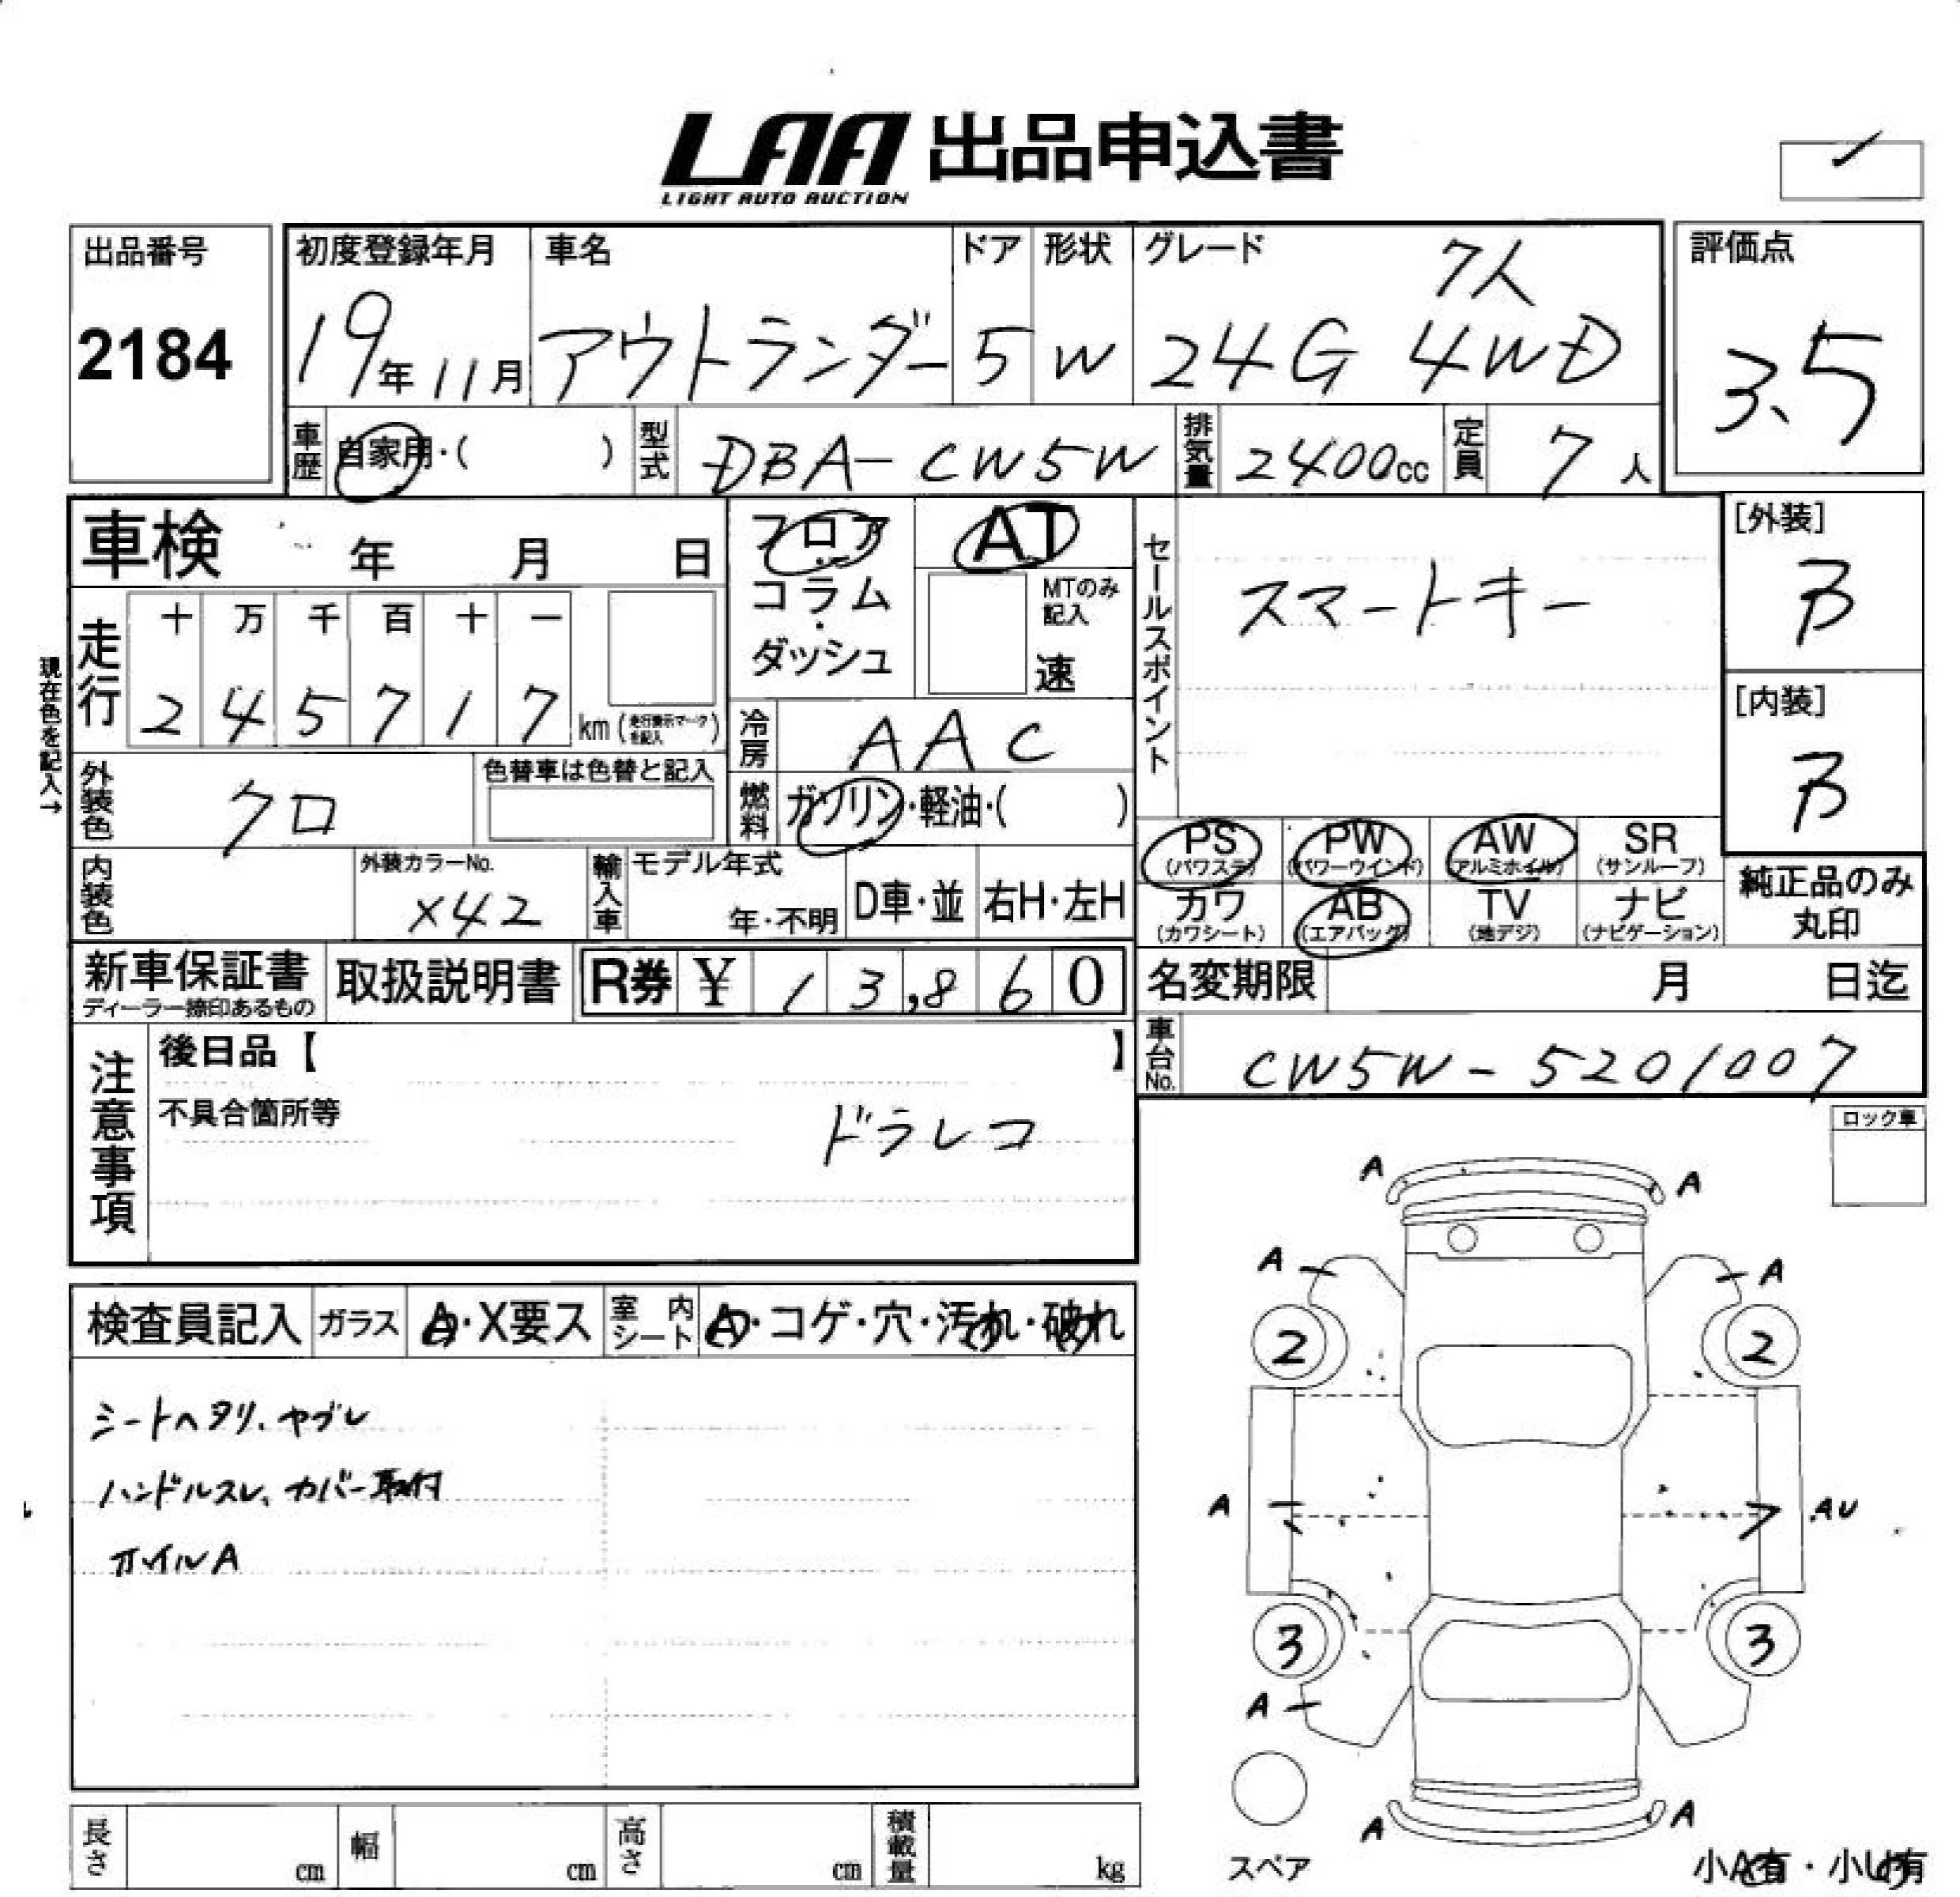 LAA 出品申込書
LIGHT AUTO AUCTION
出品番号
2184
初度登録年月
19年11月
車名
アウトランダー
ドア
5
形状
W
グレード
7人
24G 4WD
評価点
3.5
車歴
自家用・( )
型式
DBA-CW5W
排気量
2400cc
定員
7人
車検 年 月 日
フロア・コラム・ダッシュ
AT
MTのみ記入
速
セールスポイント
スマートキー
[外装]
B
[内装]
B
現在色を記入→
走行
十 万 千 百 十 一
2 4 5 7 1 7 km(走行表示マークを記入)
冷房
AAC
外装色
クロ
色替車は色替と記入
燃料
ガソリン・軽油・( )
PS (パワステ)
PW (パワーウインド)
AW (アルミホイル)
SR (サンルーフ)
カワ (カワシート)
AB (エアバック)
TV (地デジ)
ナビ (ナビゲーション)
純正品のみ丸印
内装色
外装カラーNo.
X42
輸入車
モデル年式
年・不明
D車・並
右H・左H
新車保証書
ディーラー捺印あるもの
取扱説明書
R券 ¥ 13,860
名変期限 月 日迄
車台No.
CW5W-5201007
注意事項
後日品【 】
不具合箇所等
ドラレコ
ロック車
検査員記入
ガラス
A・X要ス
室内シート
A・コゲ・穴・汚れ・破れ
シートヘタリ、ヤブレ
ハンドルスレ、カバー取付
オイルA
A A
A A
2 2
A AU
3 3
A
A A
スペア
小A有・小U有
長さ cm
幅 cm
高さ cm
積載量 kg